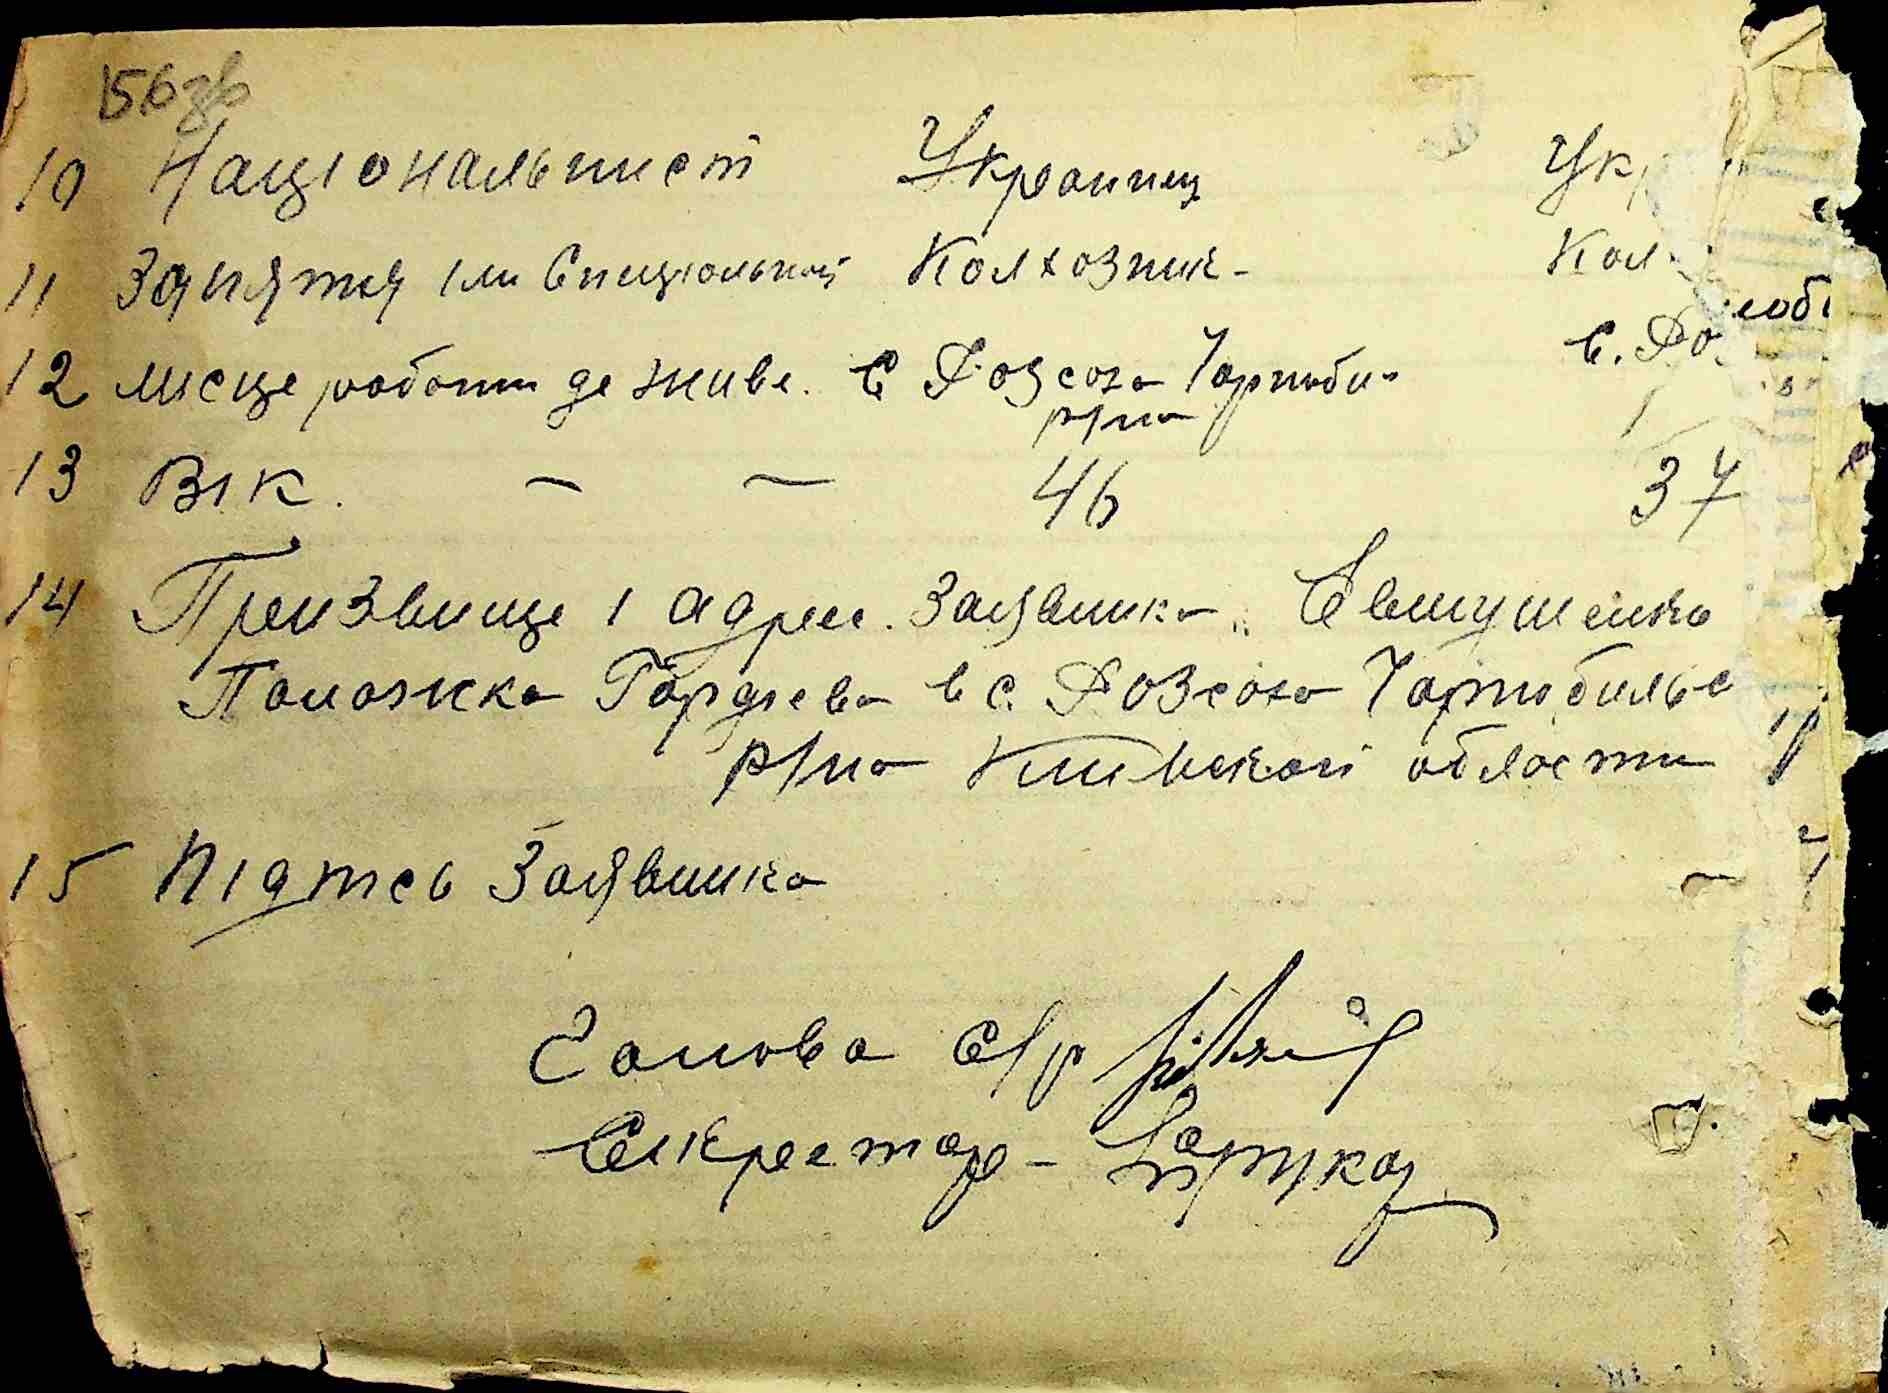 156 зв
10 Національніст Украинец Укр
11 Заняття іли Специольной Колхозник - Кол
12 Лисце работи де живе. С Розсоха Чорноби- с. Ро
р/на
13 Вік. — — 46 37
14 Преизвище і адрес. Заявника Евтушенко
Паложка Гордієва в с. Розсоха Чорнобильс
р/на Киивской области
15 Підпсь Заявника
Голова с/р
Секретар -